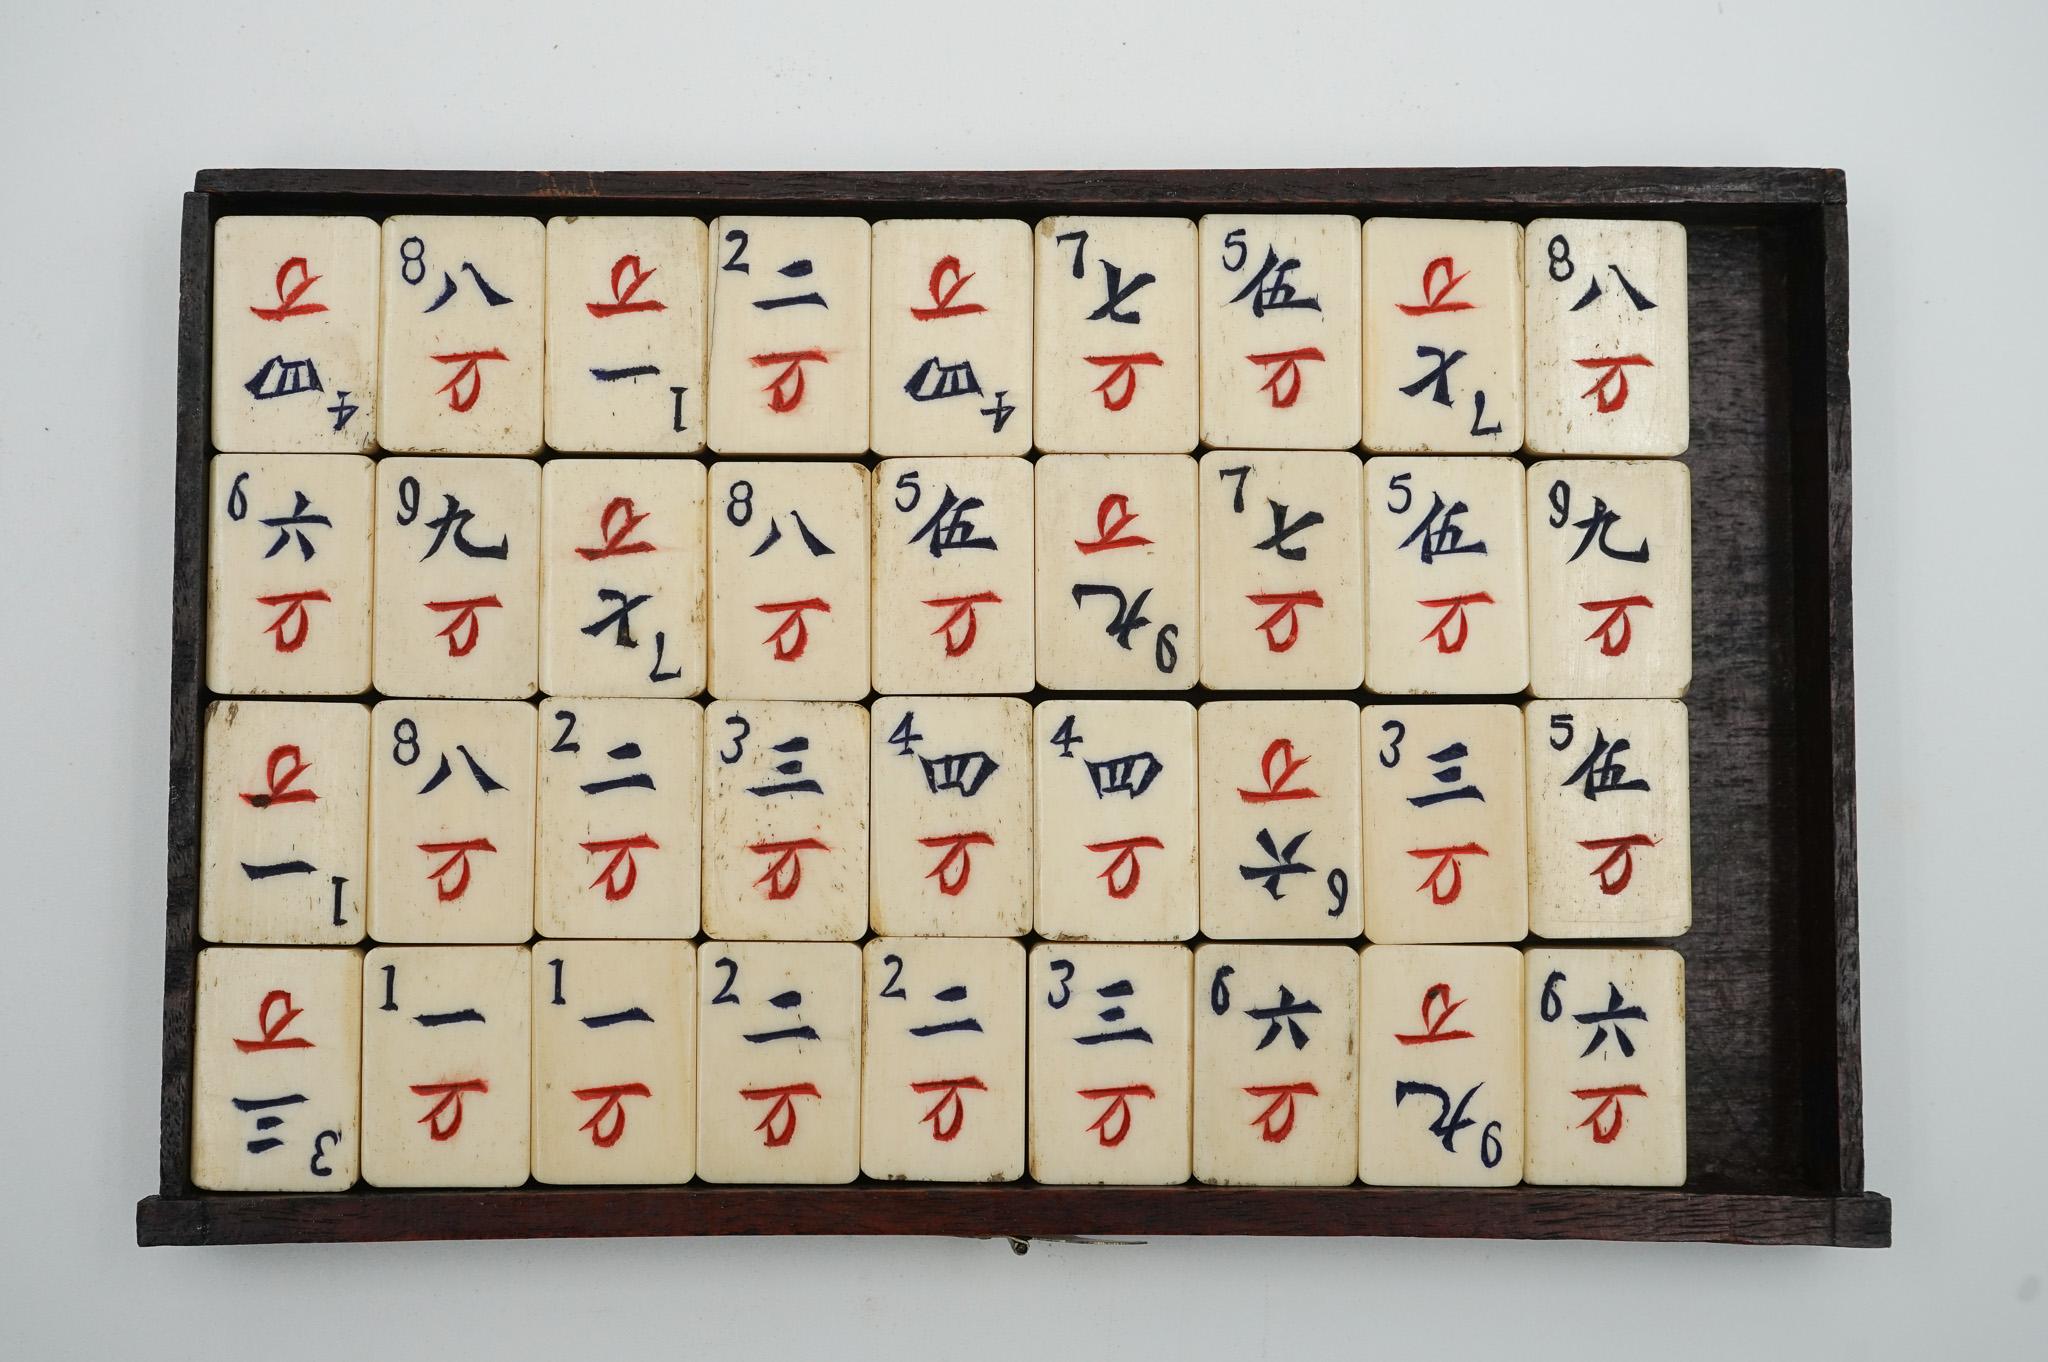 4 四 万 8 八 万 1 一 万 2 二 万 4 四 万 7 七 万 5 伍 万 7 七 万 8 八 万
6 六 万 9 九 万 7 七 万 8 八 万 5 伍 万 9 九 万 7 七 万 5 伍 万 9 九 万
1 一 万 8 八 万 2 二 万 3 三 万 4 四 万 4 四 万 6 六 万 3 三 万 5 伍 万
3 三 万 1 一 万 1 一 万 2 二 万 2 二 万 3 三 万 6 六 万 9 九 万 6 六 万